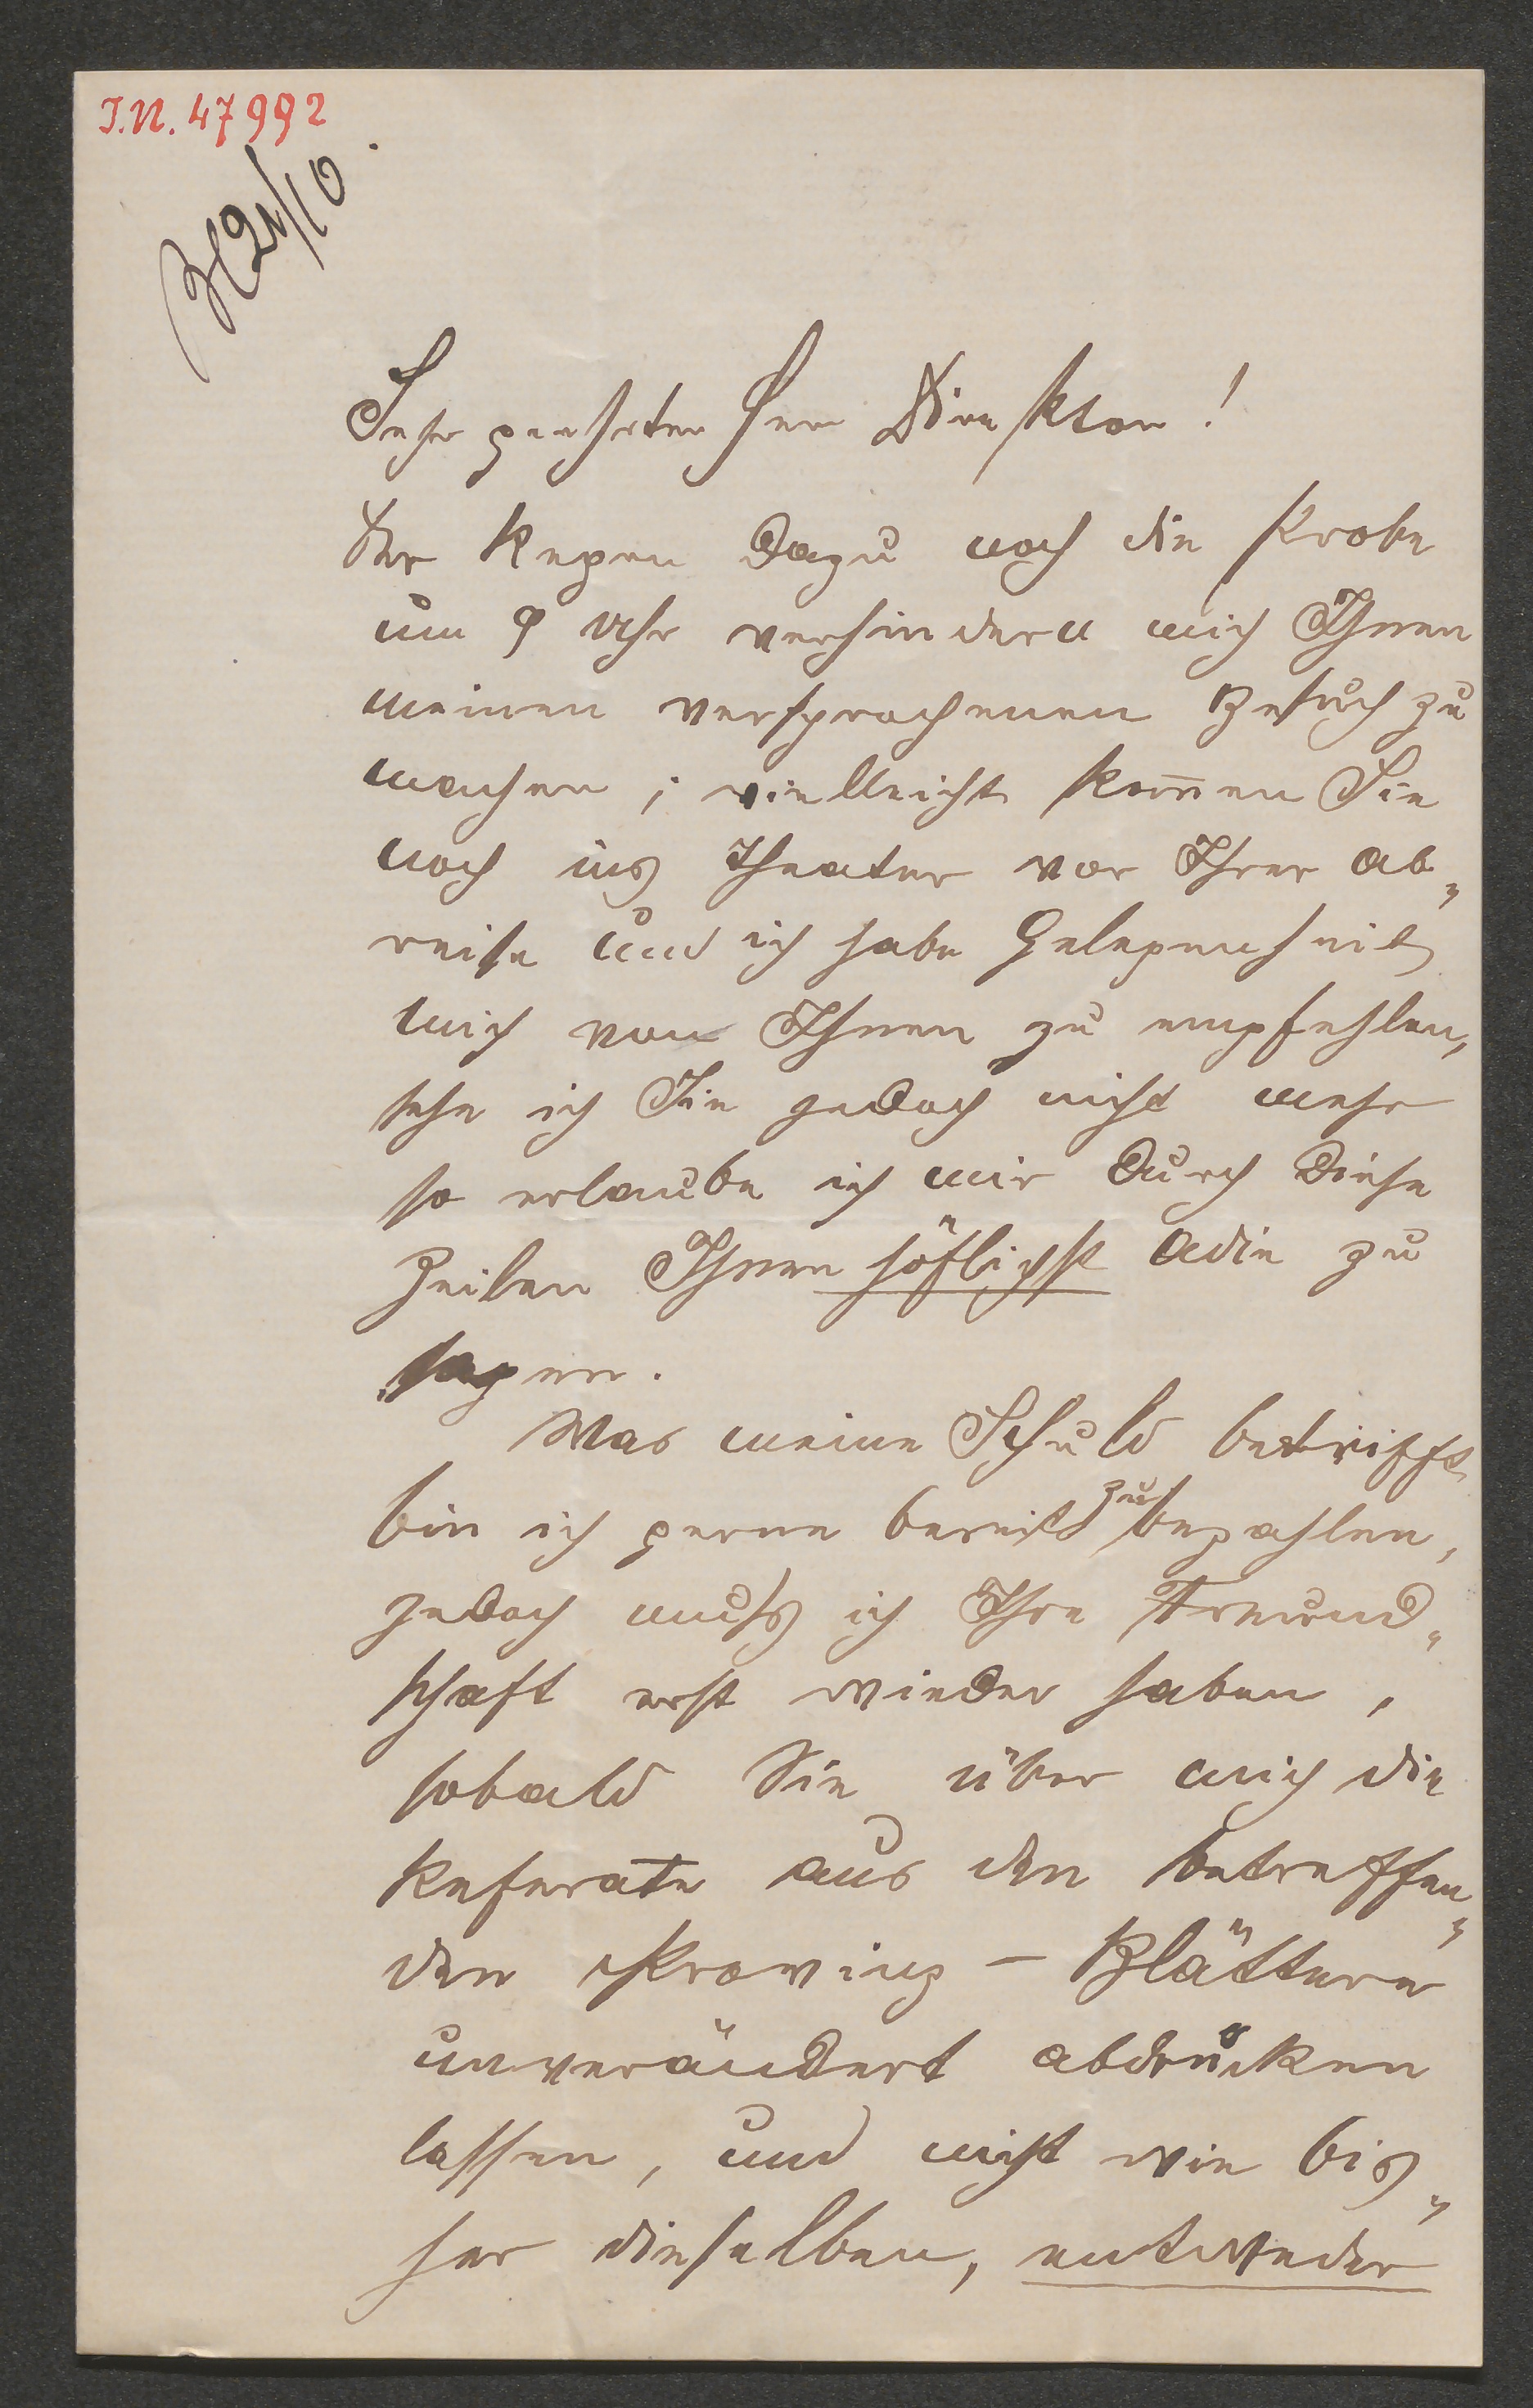 I.N. 47992
21/10.
Sehr geehrter Herr Direktor!
Der Regen dazu noch die Probe
um 9 Uhr verhindern mich Ihnen
meinen versprochenen Besuch zu
machen; vielleicht kom̄en Sie
noch ins Theater vor Ihrer Ab„
reise und ich habe Gelegenheit
mich von Ihnen zu empfehlen,
sehe ich Sie jedoch nicht mehr
so erlaube ich mir durch diese
Zeilen Ihnen höflichst Adie zu
sagen.
Was meine Schuld betrifft
bin ich gerne bereit zu bezahlen,
jedoch muß ich Ihre Freund„
schaft erst wieder haben,
sobald Sie über mich die
Referate aus den betreffen„
den Provinz-Blättern
unverändert abdrucken
lassen, und nicht wie bis„
her dieselben, entweder